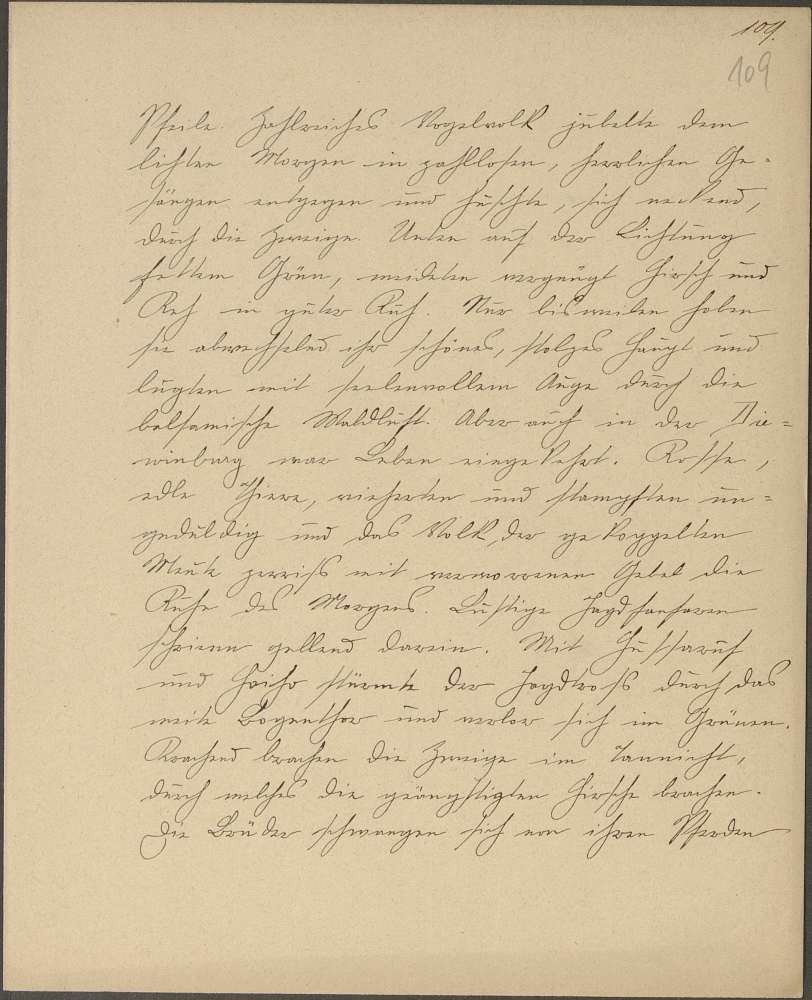 109.
109
Pfeile. Zahlreiches Vogelvolk jubelte dem
lichten Morgen in zahllosen, herrlichen Ge-
sängen entgegen und huschte, sich neckend,
durch die Zweige. Unten auf der Lichtung
fettem Grün, weideten vergnügt Hirsch und
Reh in guter Ruh. Nur bisweilen hoben
sie abwechselnd ihr schönes, stolzes Haupt und
lugten mit seelenvollem Auge durch die
balsamische Waldluft. Aber auch in der Die=
winburg war Leben eingekehrt. Rosse,
edle Thiere, wieherten und stampften un=
geduldig und das Volk der gekoppelten
Meute zerriss mit verworrenem Gebel die
Ruhe des Morgens. Lustige Jagdfanfaren
schrieen gellend darein. Mit Hussaruf
und Hoiho stürmte der Jagdtross durch das
weite Bogenthor und verlor sich im Grünen.
Krachend brachen die Zweige im Tannicht,
durch welches die geängstigten Hirsche brachen.
Die Brüder schwangen sich von ihren Pferden